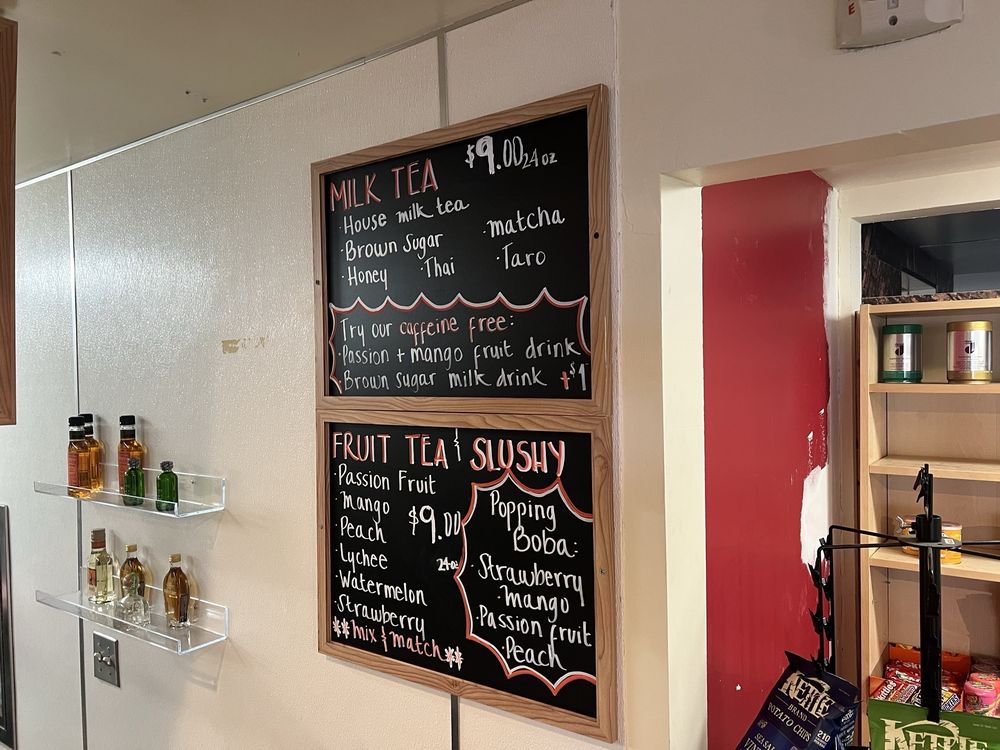 MILK TEA $9.00 24oz
· House milk tea
· Brown Sugar · matcha
· Honey · Thai · Taro
Try our caffeine free:
· Passion + mango fruit drink
· Brown sugar milk drink +$1
FRUIT TEA & SLUSHY
· Passion Fruit
· Mango
· Peach $9.00
· Lychee 24oz
· Watermelon
· Strawberry
** mix & match **
Popping
Boba:
· Strawberry
· Mango
· Passion fruit
· Peach
KETTLE
BRAND
POTATO CHIPS
210
KETTLE